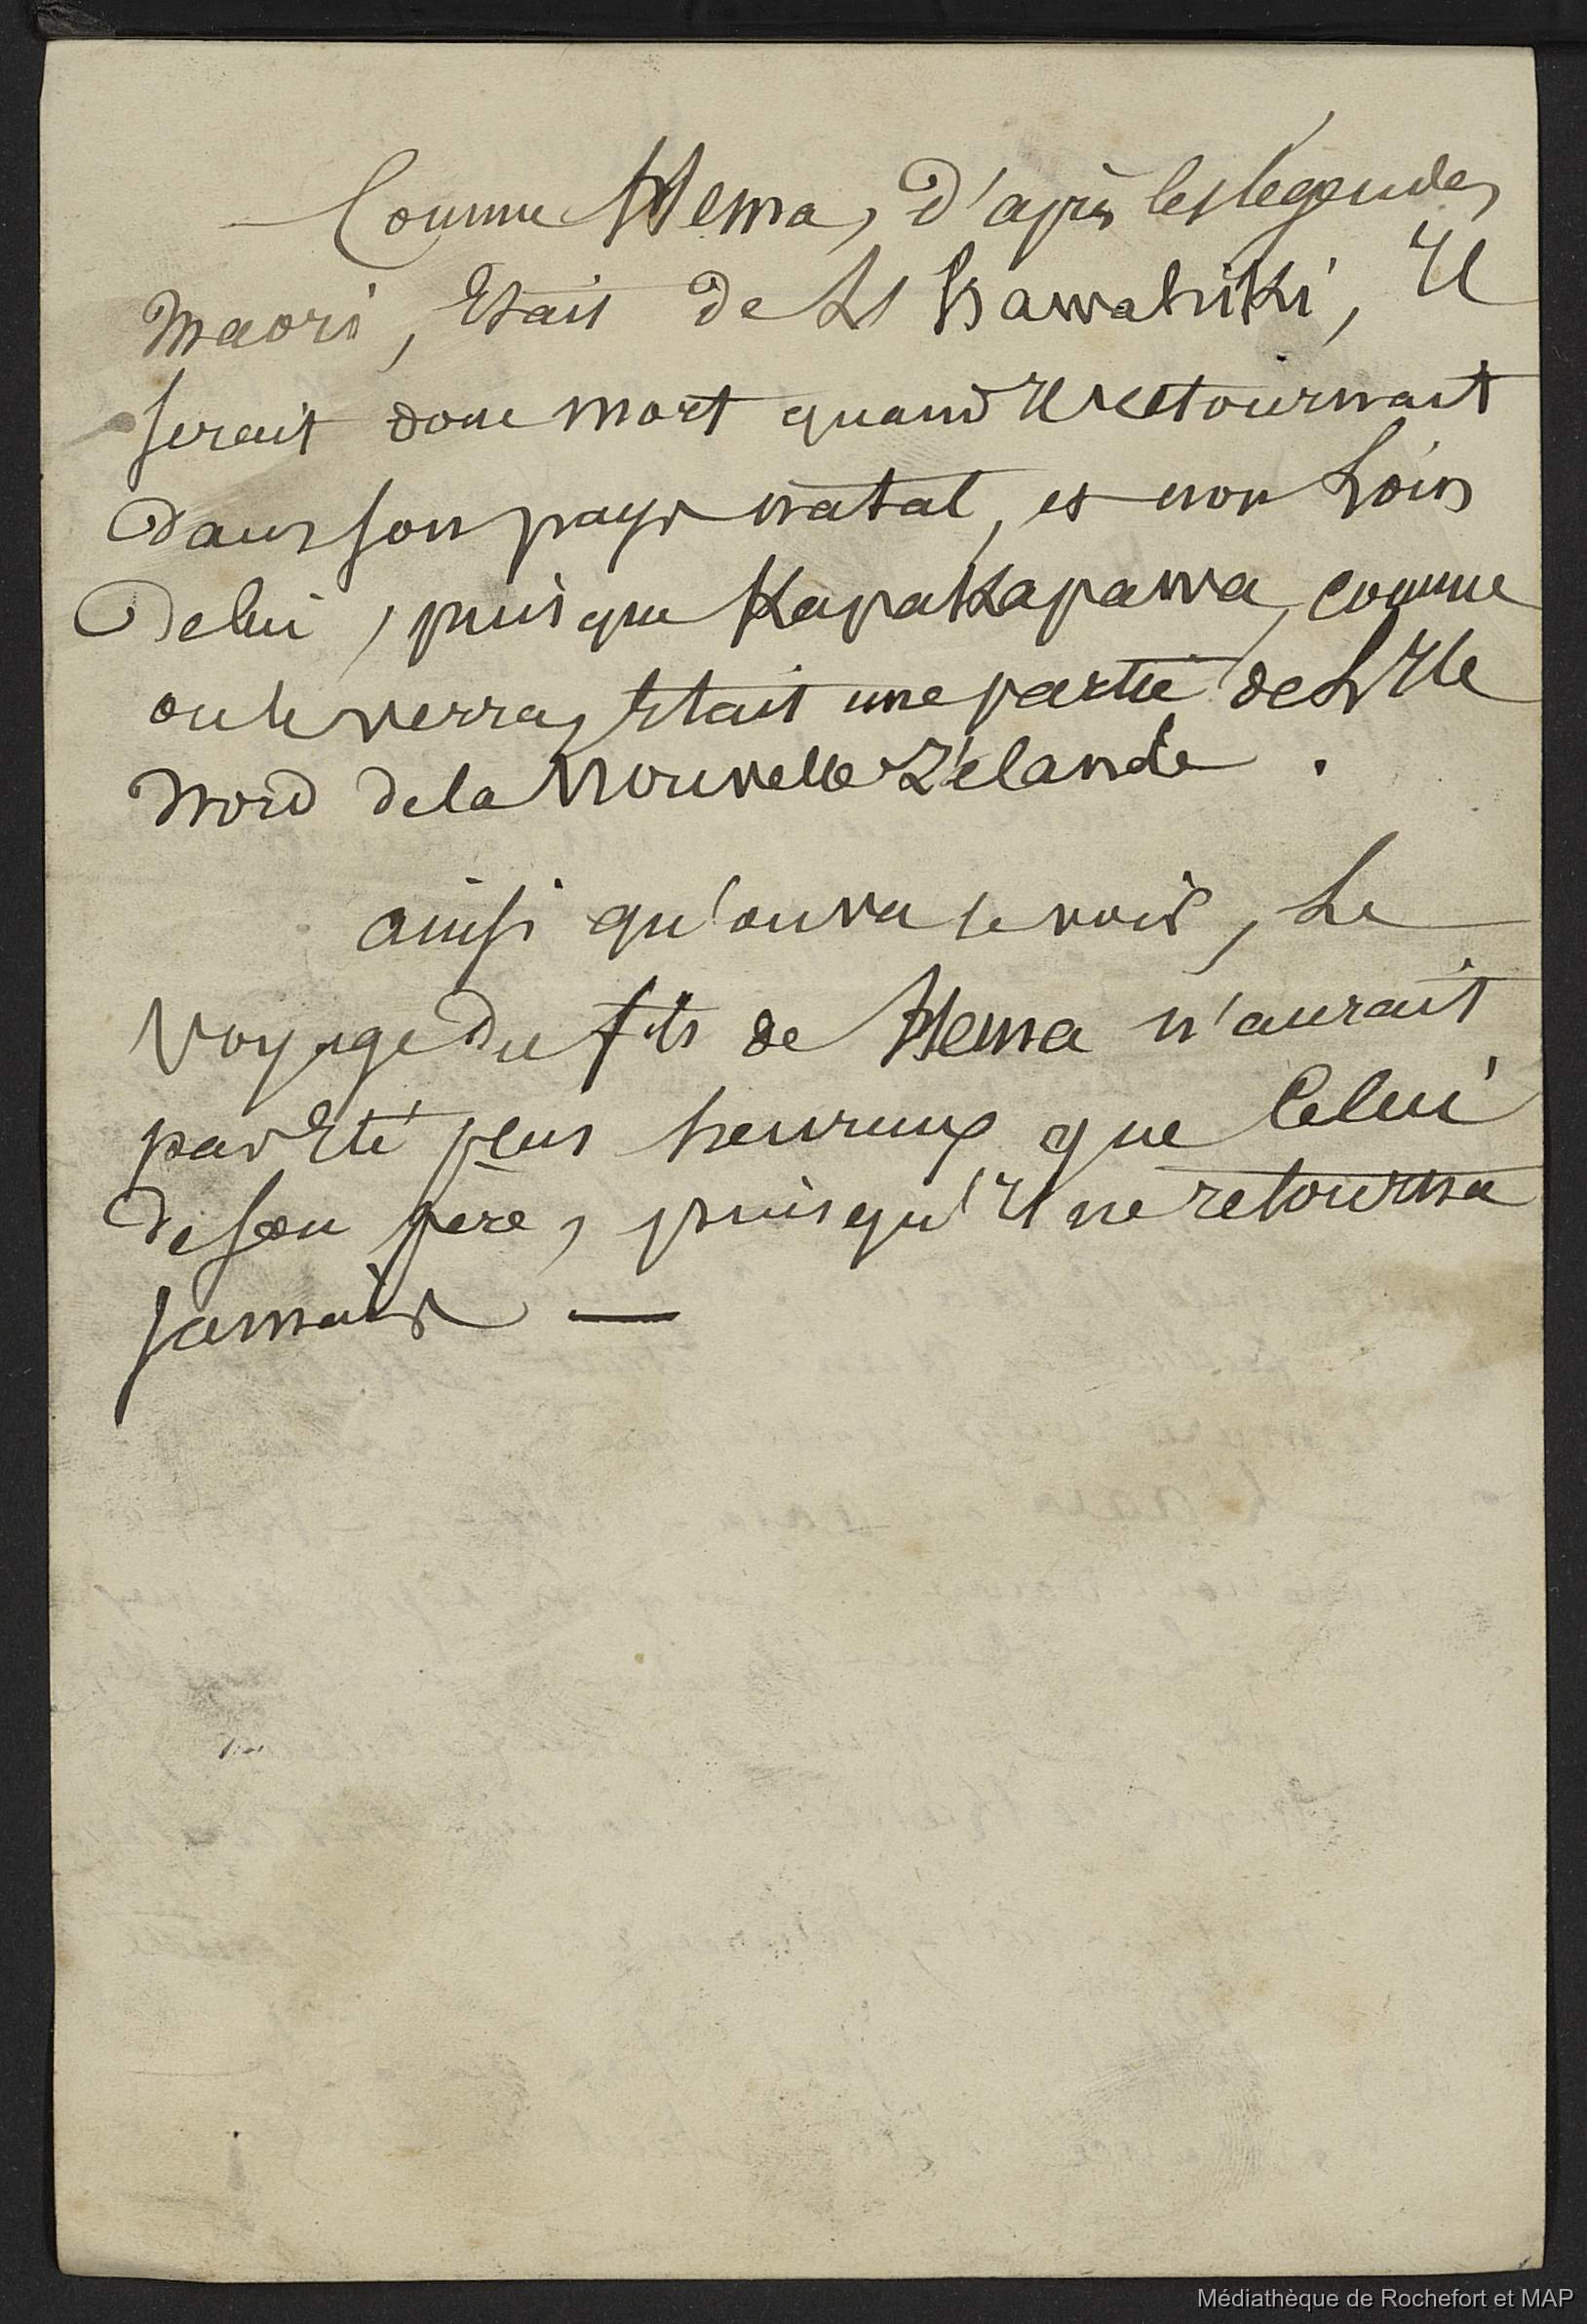 — Comme Hema, d'après les legendes
maori, Etait de L'Hawahiki, Il
serait donc mort quand Il retournait
dans son pays natal, et non Loin
de lui, puisque Kapakapawa, comme
on le verra, Etait une partie de L'Ile
Nord de la Nouvelle Zélande.
ainsi qu'on va le voir, Le
voyage du fils de Hema n'aurait
pas Eté plus heureux que Celui
de son père, puisqu'Il ne retourna
jamais —
Médiathèque de Rochefort et MAP